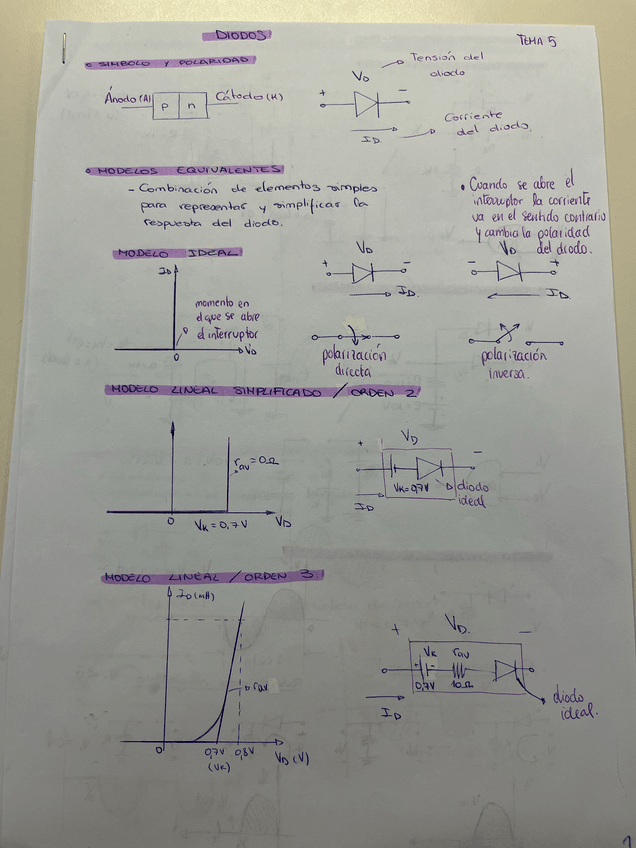 DIODOS
TEMA 5
• SIMBOLO Y POLARIDAD
Ánodo(A) p n Cátodo(K)
VD
Tensión del
diodo
+ -
ID
Corriente
del diodo.
• MODELOS EQUIVALENTES
- Combinación de elementos simples
para representar y simplificar la
respuesta del diodo.
• Cuando se abre el
interruptor la corriente
va en el sentido contrario
y cambia la polaridad
del diodo.
MODELO IDEAL
ID
momento en
el que se abre
el interruptor
0 VD
VD
+ -
ID.
polarización
directa
VD
- +
ID.
polarización
inversa.
MODELO LINEAL SIMPLIFICADO / ORDEN 2
rav = 0Ω
0 VK = 0,7 V VD
VD
+ -
VK = 0,7V
diodo
ideal
ID
MODELO LINEAL / ORDEN 3
ID (mA)
rav
0 0,7V 0,8V VD (V)
(VK)
VD.
+ -
VK rav
+ -
0,7V 10Ω
ID
diodo
ideal.
1